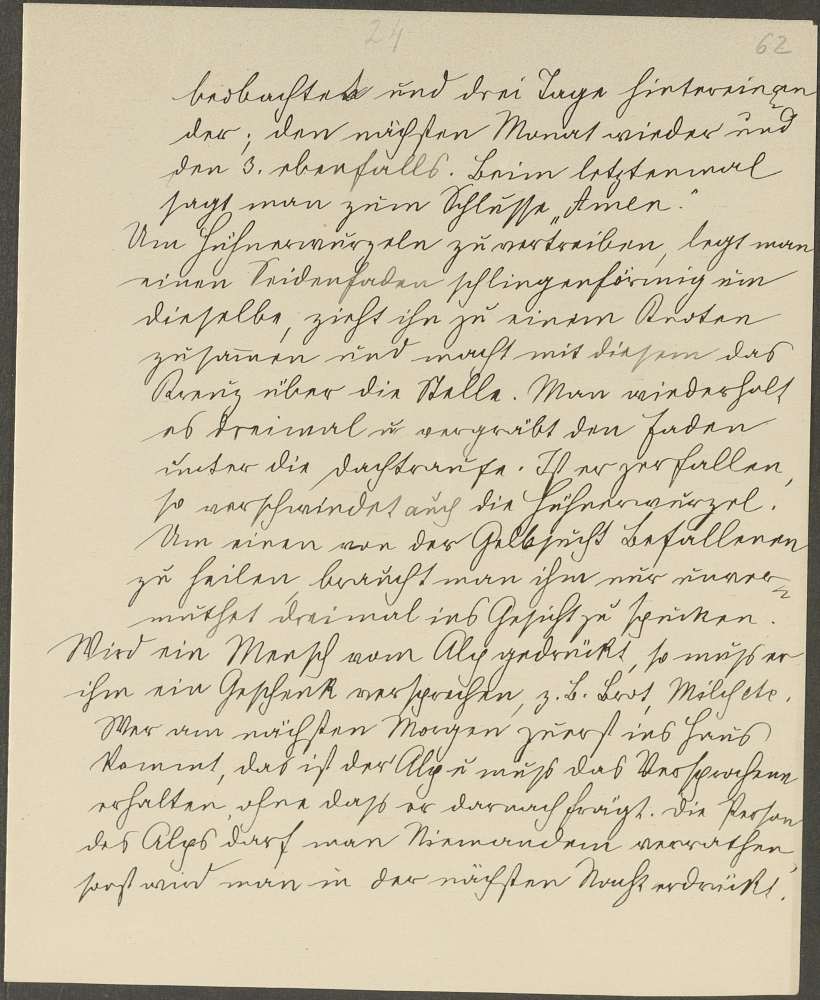 24
62
beobachtet und drei Tage hintereinan
der; den nächsten Monat wieder und
den 3. ebenfalls. Beim letztenmal
sagt man zum Schlusse „Amen."
Um Hühnerwurzeln zu vertreiben, legt man
einen Seidenfaden schlingenförmig um
dieselbe, zieht ihn zu einem Knoten
zusam̅en und macht mit diesem das
Kreuz über die Stelle. Man wiederholt
es dreimal u vergräbt den Faden
unter die Dachtraufe. Ist er zerfallen,
so verschwindet auch die Hühnerwurzel.
Um einen von der Gelbsucht Befallenen
zu heilen, braucht man ihm nur unver=
muthet dreimal ins Gesicht zu spucken.
Wird ein Mensch vom Alp gedrückt, so muss er
ihm ein Geschenk versprechen, z. B. Brot, Milch etc.
Wer am nächsten Morgen zuerst ins Haus
kommt, das ist der Alp u muss das Versprochene
erhalten, ohne dass er darnach frägt. Die Person
des Alps darf man Niemandem verrathen,
sonst wird man in der nächsten Nacht erdrückt.